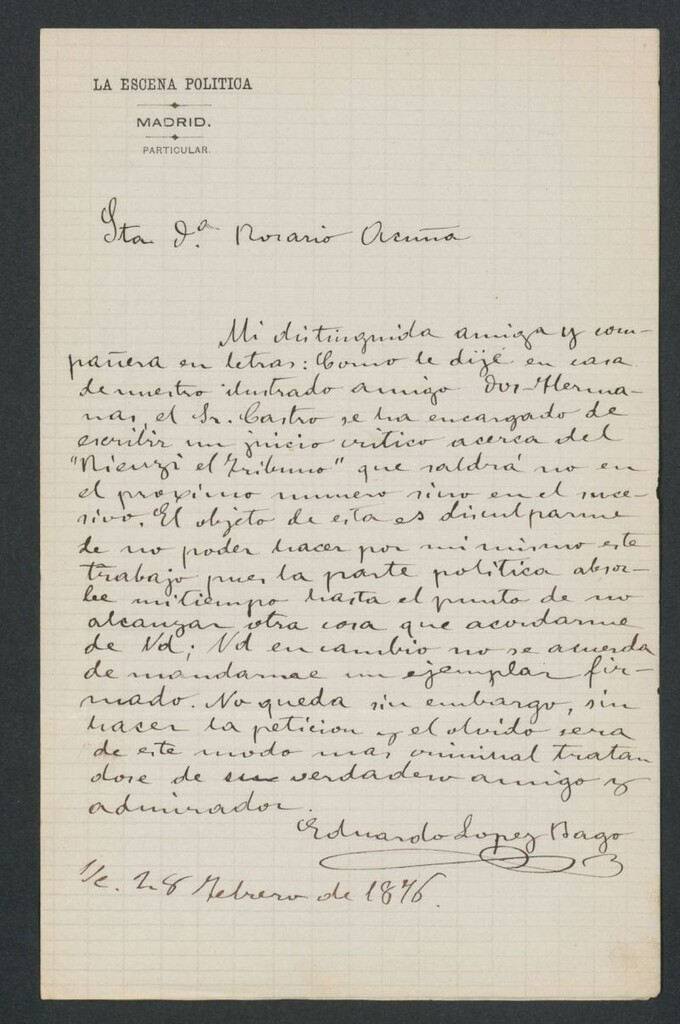 LA ESCENA POLITICA
MADRID.
PARTICULAR.
Sta D.ª Rosario Acuña
Mi distinguida amiga y com-
pañera en letras: Como le dije en casa
de nuestro ilustrado amigo Dos-Herma-
nas, el Sr. Castro se ha encargado de
escribir un juicio critico acerca del
"Rienzi el Tribuno" que saldrá no en
el proximo numero sino en el suce-
sivo. El objeto de esta es disculparme
de no poder hacer por mi mismo este
trabajo pues la parte politica absor-
be mi tiempo hasta el punto de no
alcanzar otra cosa que acordarme
de Vd; Vd en cambio no se acuerda
de mandarme un ejemplar fir-
mado. No queda sin embargo, sin
hacer la peticion y el olvido sera
de este modo mas criminal tratan
dose de un verdadero amigo y
admirador.
Eduardo Lopez Bago
S/c. 28 Febrero de 1876.